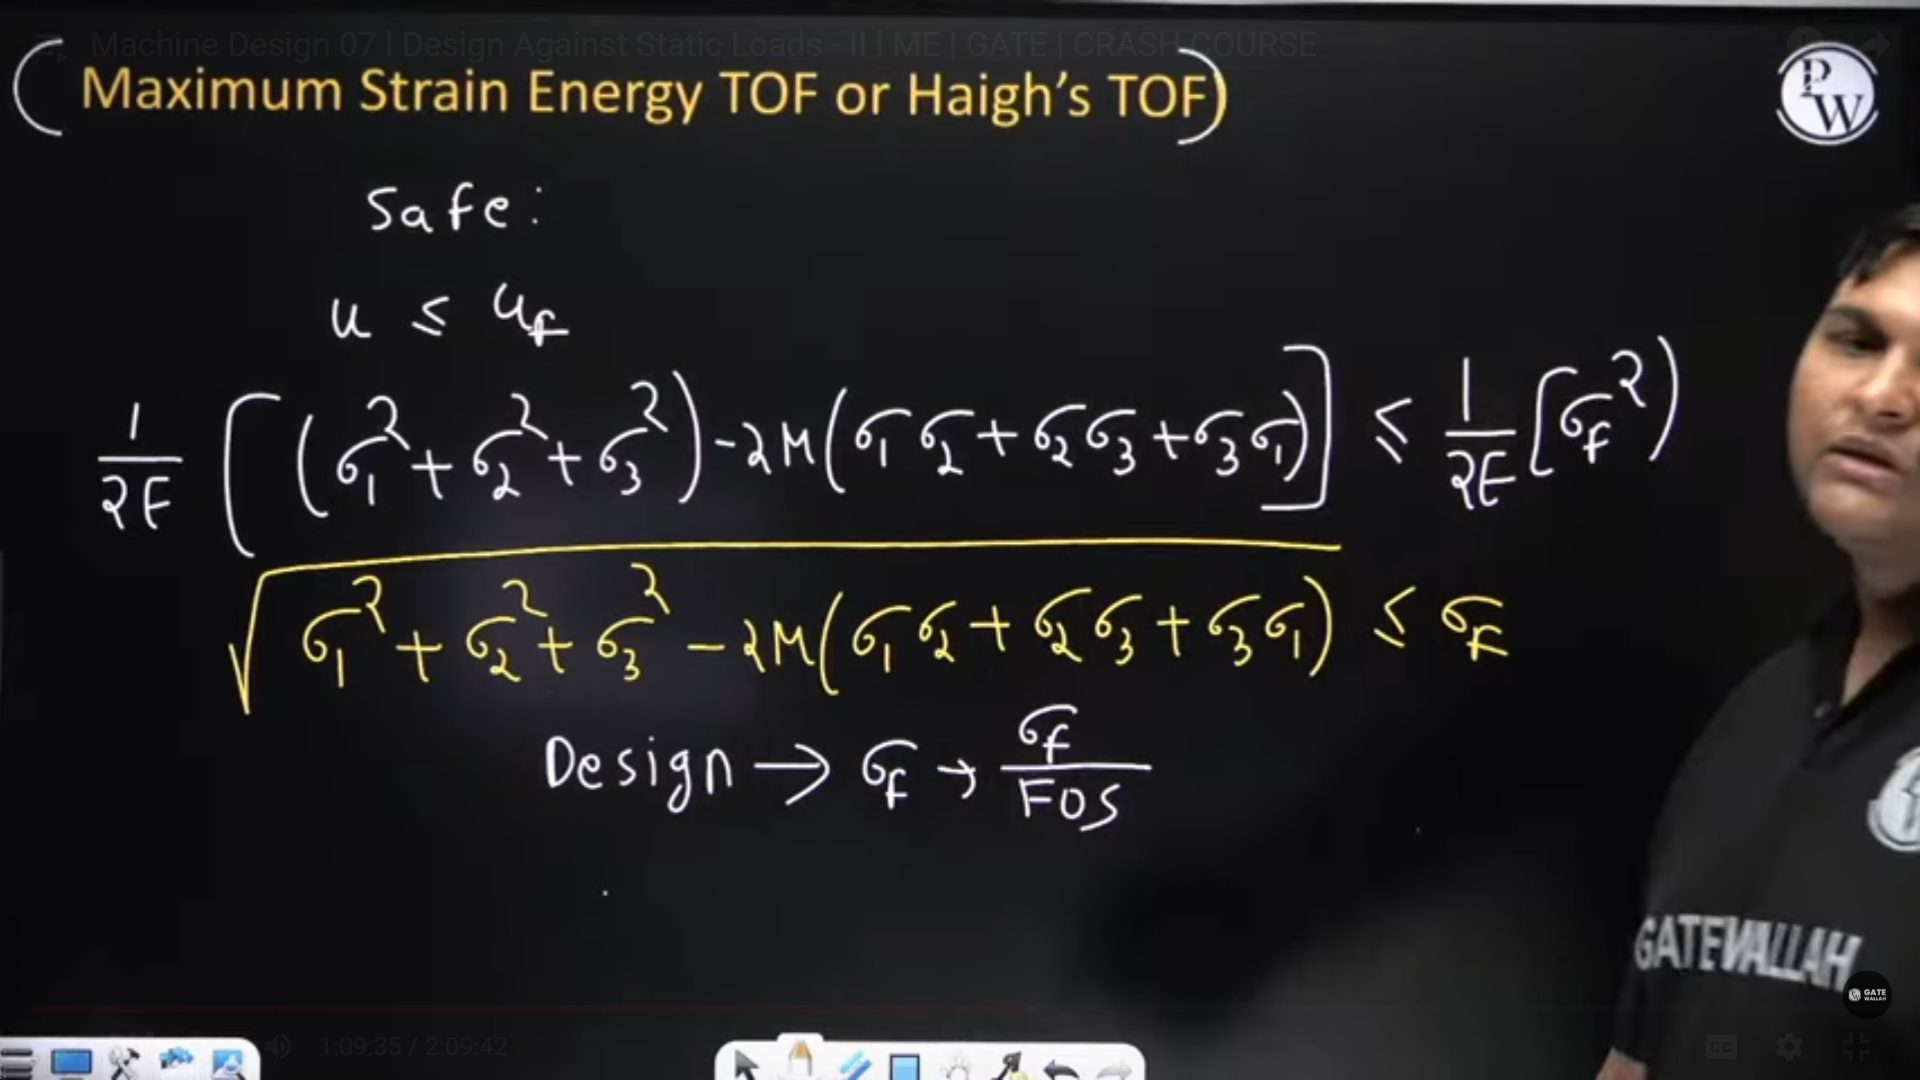 Machine Design 07 | Design Against Static Loads - II | ME | GATE | CRASH COURSE
(Maximum Strain Energy TOF or Haigh's TOF)
PW
Safe:
u ≤ u_f
1/2E [(σ₁² + σ₂² + σ₃²) - 2μ(σ₁σ₂ + σ₂σ₃ + σ₃σ₁)] ≤ 1/2E [σ_f²)
√(σ₁² + σ₂² + σ₃² - 2μ(σ₁σ₂ + σ₂σ₃ + σ₃σ₁)) ≤ σ_f
Design → σ_f → σ_f/FOS
GATEWALLAH
GATE WALLAH
1:09:35 / 2:09:42
CC